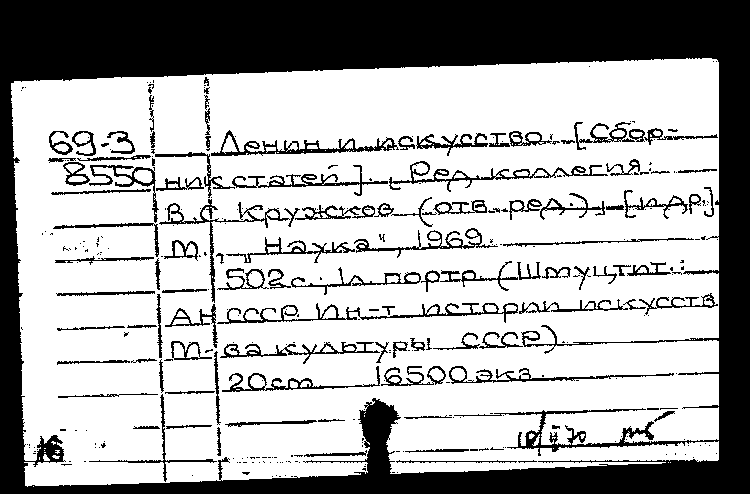 69-3 Ленин и искусство. [Сбор-
8550 ник статей]. Ред. коллегия:
В.С. Кружков (отв. ред.) [и др.]
М., „Наука", 1969.
502 с.; 1 л. портр. (Шмуцтит.:
АН СССР. Ин-т истории искусств
М-ва культуры СССР)
20cm 16500 экз.
16 10/II 70